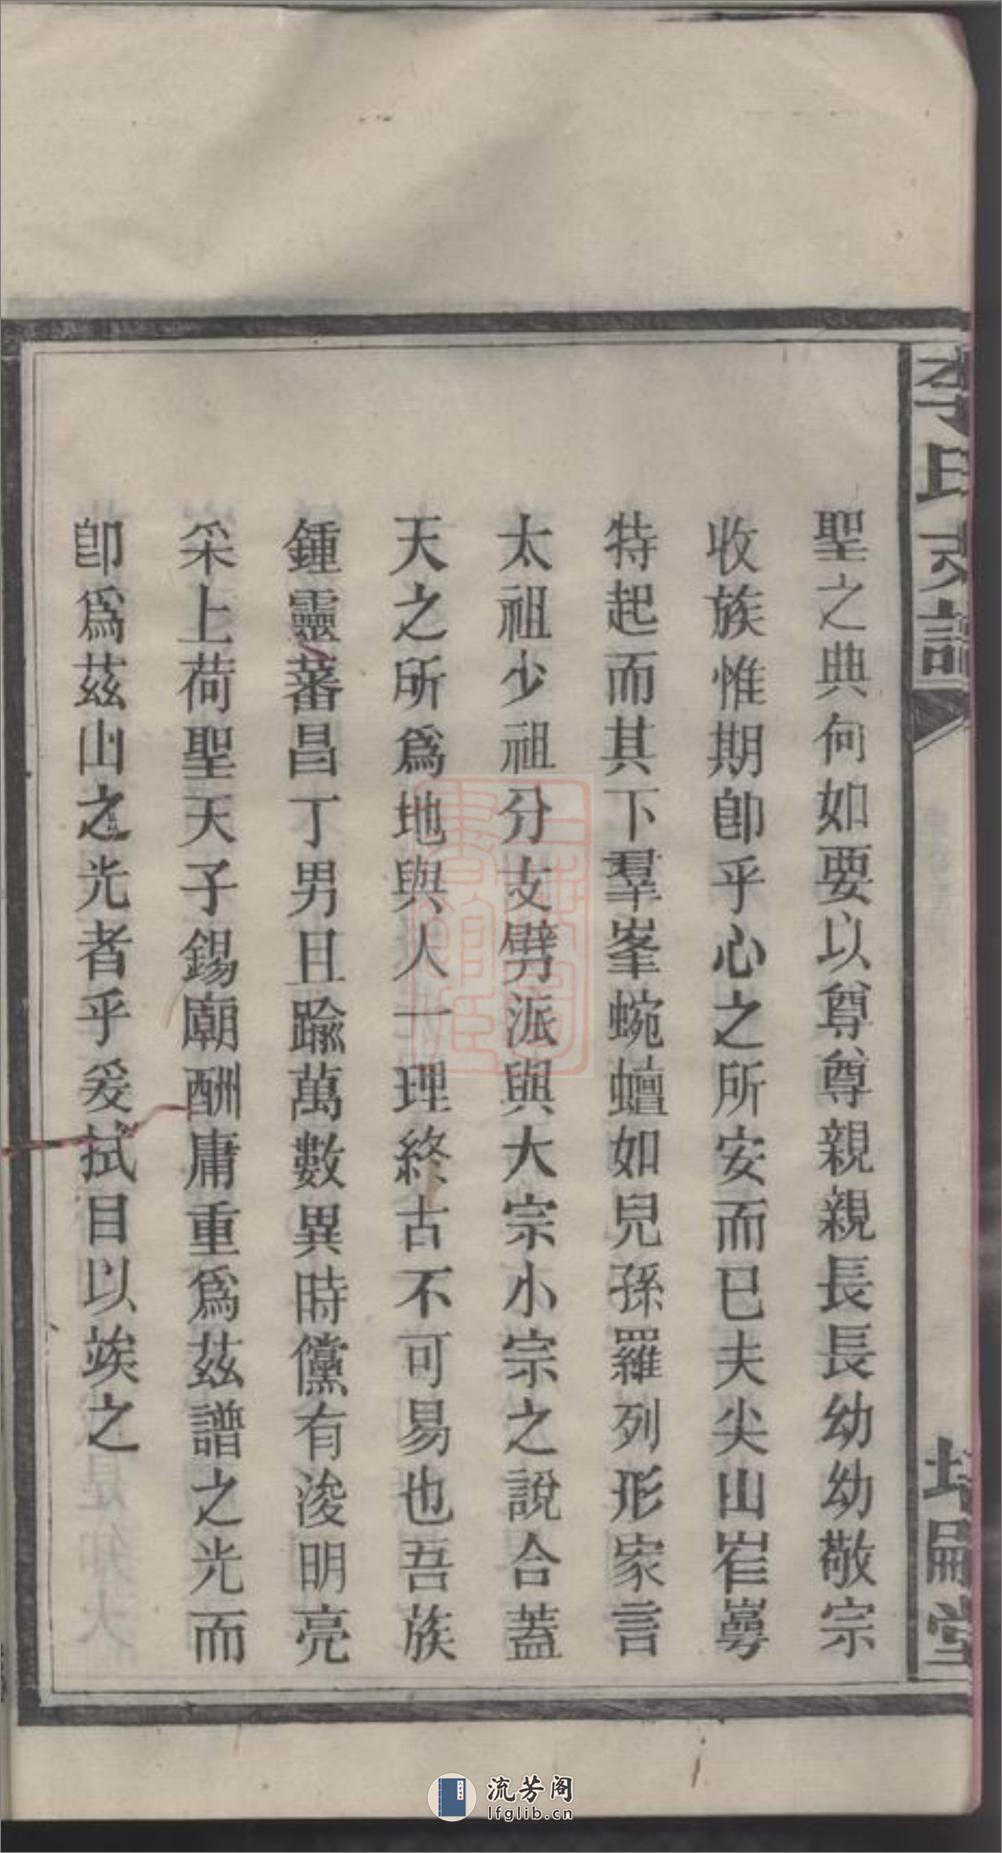 李氏支譜
培嗣堂
聖之典何如要以尊尊親親長長幼幼敬宗
收族惟期卽乎心之所安而已夫尖山崔嵬
特起而其下羣峯蜿蟺如兒孫羅列形家言
太祖少祖分支劈派與大宗小宗之說合蓋
天之所爲地與人一理終古不可易也吾族
鍾靈蕃昌丁男且踰萬數異時儻有浚明亮
采上荷聖天子錫廟酬庸重爲茲譜之光而
卽爲茲山之光者乎爰拭目以竢之
流芳阁
lfglib.cn